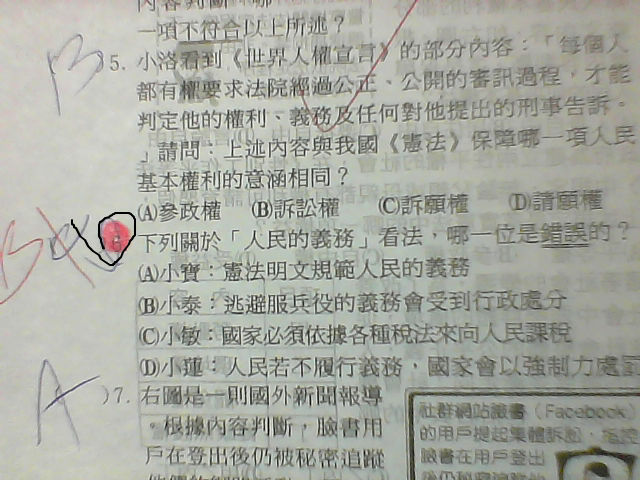 內容判斷，哪
一項不符合以上所述？
5. 小洛看到《世界人權宣言》的部分內容：「每個人
都有權要求法院經過公正、公開的審訊過程，才能
判定他的權利、義務及任何對他提出的刑事告訴。
」請問：上述內容與我國《憲法》保障哪一項人民
基本權利的意涵相同？
(A)參政權 (B)訴訟權 (C)訴願權 (D)請願權
下列關於「人民的義務」看法，哪一位是錯誤的？
(A)小寶：憲法明文規範人民的義務
(B)小泰：逃避服兵役的義務會受到行政處分
(C)小敏：國家必須依據各種稅法來向人民課稅
(D)小蓮：人民若不履行義務，國家會以強制力處
A
)7. 右圖是一則國外新聞報導
。根據內容判斷，臉書用
戶在登出後仍被秘密追蹤
社群網站臉書（Facebook）
的用戶提起集體訴訟，指控
臉書在用戶登出